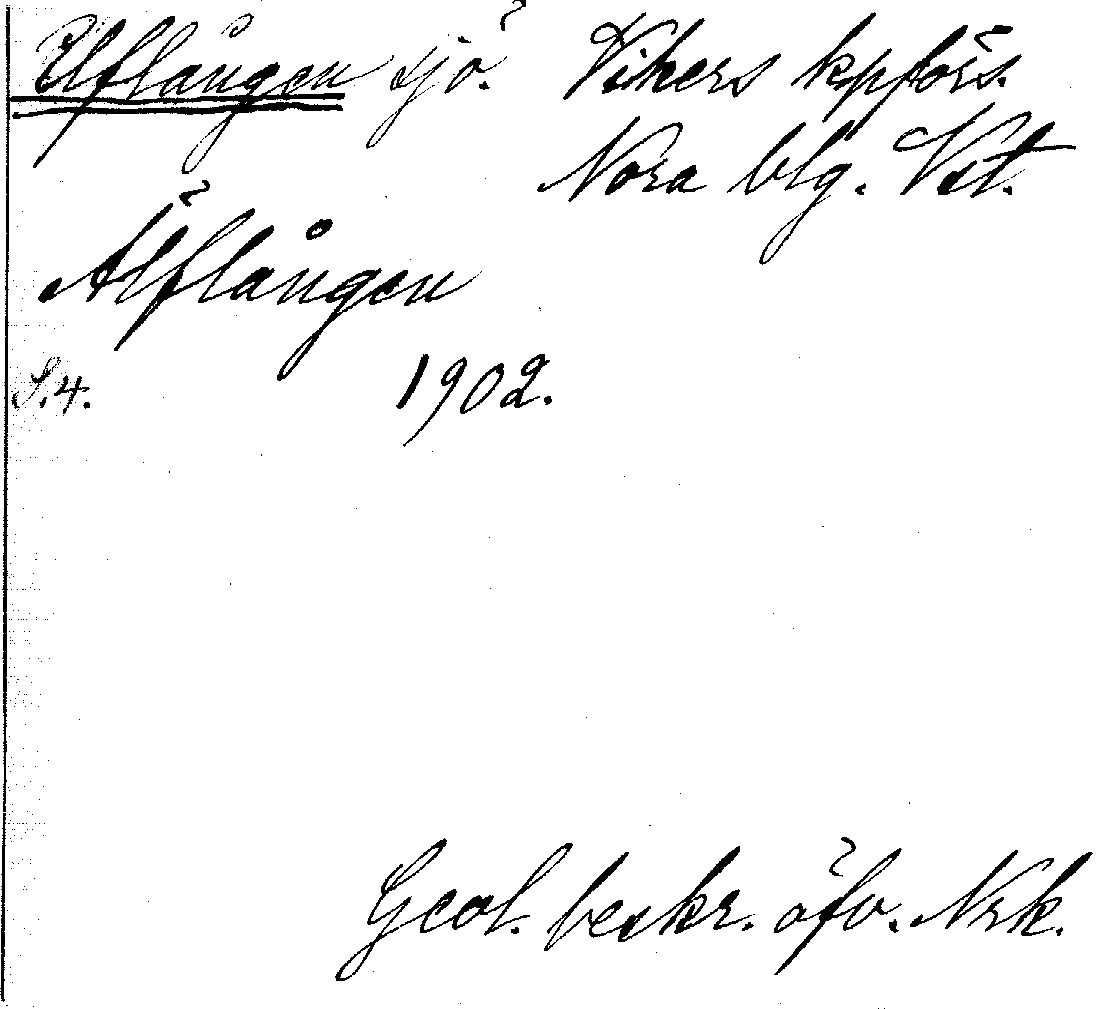 Elflången sjö. Vikers kpförs.
Nora blg. Vst.
Älflången
S.4. 1902.
Geol. beskr. öfv. Nrk.